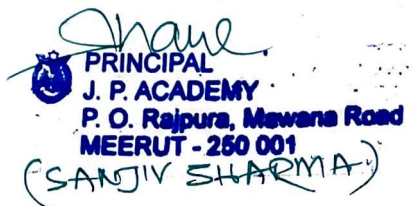 PRINCIPAL
J. P. ACADEMY
P. O. Rajpura, Mawana Road
MEERUT - 250 001
(SANJIV SHARMA)